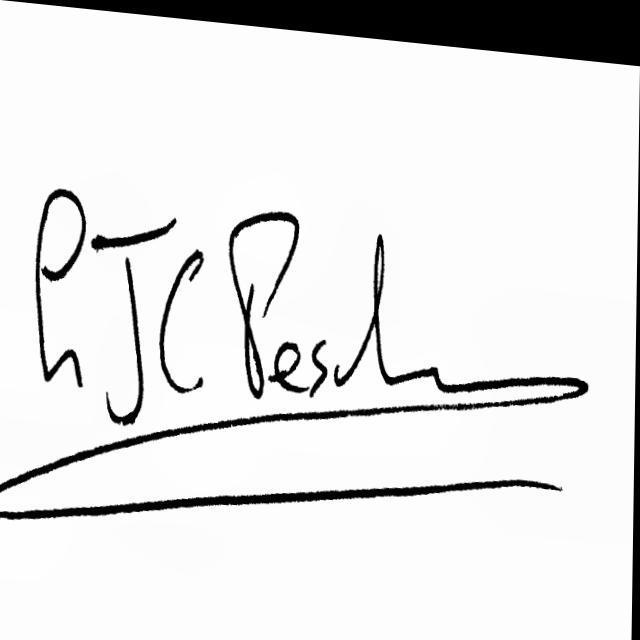 JC Pesch